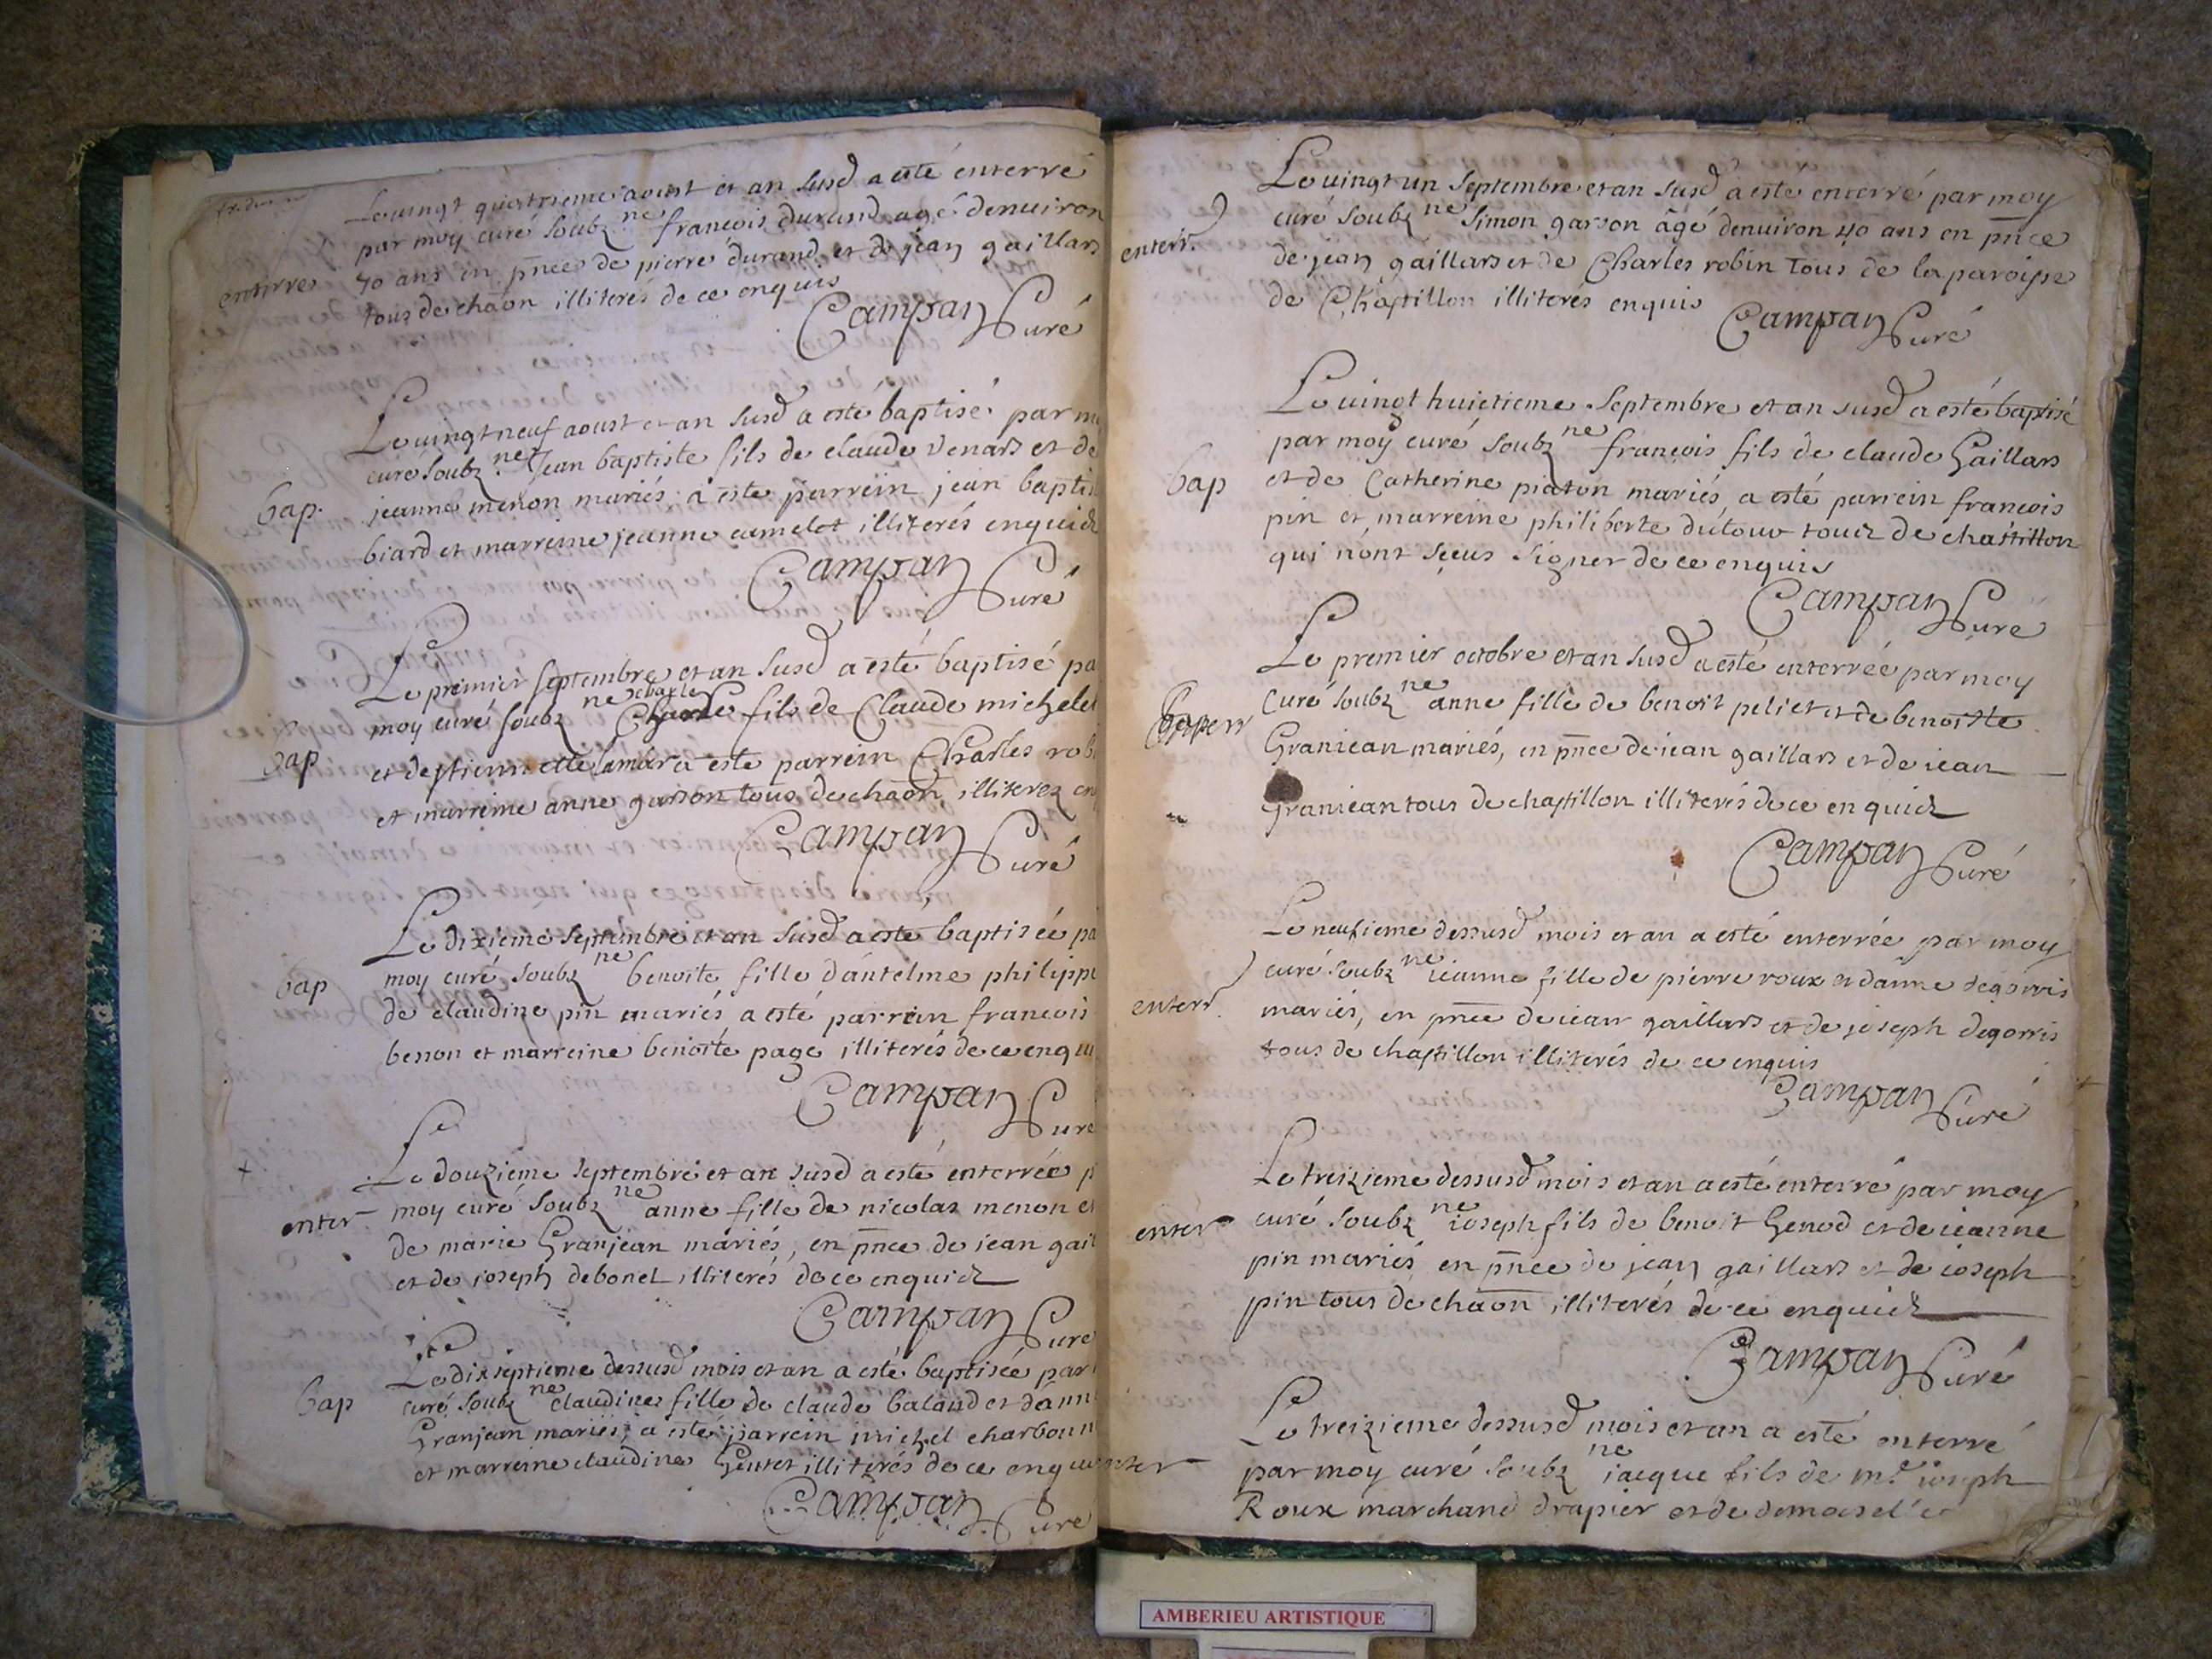 Le vingt quatrieme aoust et an susd a esté enterré
par moy curé soubz.ne françois durand agé denuiron
enterres 70 ans en pñce de pierre durand et de jean gaillars
tous de chaon illiterés de ce enquis
Campan Curé
Le uingt neuf aoust et an susd a esté baptisé par
curé soubz.ne Jean baptiste fils de claude venars et de
bap. jeanne menon mariés, a esté parrein jean
biard et marreine jeanne camelot illiterés enquid
Campan Curé
Le premier septembre et an susd a esté baptisé
moy curé soubz ne charle Charle fils de Claude
bap et destiennette lambar a esté parrein Charles
et marreine anne garson tous de chaon illiterez
Campan Curé
Le dixieme septembre et an susd a esté baptisée
bap moy curé soubz ne benoite fille dántelme
de claudine pin mariés a esté parrein francois
benon et marreine benoîte page illiterés de ce
Campan
Curé
Le douzieme septembre et an susd a esté enterrée
enter moy curé soubz ne anne fille de nicolas menon et
de marie Granjean mariés, en pñce de jean
et de joseph debonet illiterés de ce enquid
Campan Curé
Le
Le dixseptieme dessusd mois et an a esté baptisée par
bap curé soubz ne claudine fille de claude baland et
Granjean mariés, a esté parrein michel
et marreine claudine Gentet illiterés de ce
Campan Curé
Le uingt un septembre et an susd a esté enterré par moy
enterr. curé soubz ne Simon garson âgé denuiron 40 ans en pñce
de jean gaillars et de Charles robin tous de la paroisse
de Chastillon illiterés enquis
Campan Curé
Le uingt huictieme septembre et an susd a esté baptisé
par moy curé soubz ne françois fils de claude Gaillars
bap et de Catherine piaton mariés, a esté parrein francois
pin et marreine philiberte dutour touz de chastillon
qui nónt sçeus signer de ce enquis
Campan Curé
Le premier octobre et an susd a esté enterrée par moy
curé soubz ne anne fille de benoit peliet et de benoiste
Granjean mariés, en pñce de jean gaillars et de jean
Granjean tous de chastillon illiterés de ce enquid
Campan Curé
Le neufieme dessusd mois et an a esté enterrée par moy
curé soubz ne jeanne fille de pierre roux et danne degorris
enterr. mariés, en pñce de jean gaillars et de joseph degorris
tous de chastillon illiterés de ce enquis
Campan Curé
Le treizieme dessusd mois et an a esté enterré par moy
enter curé soubz ne joseph fils de benoit Genod et de jeanne
pin mariés en pñce de jean gaillars et de joseph
pin tous de chaon illiterés de ce enquid
Campan Curé
Le treizieme dessusd mois et an a esté enterré
enter par moy curé soubz ne jacque fils de mr. joseph
Roux marchand drapier et de demoiselle
AMBERIEU ARTISTIQUE